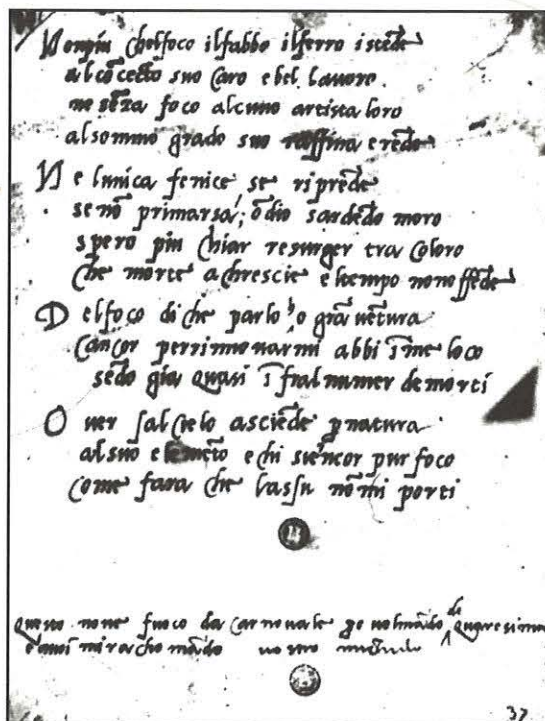 Non piu chelfoco ilfabbo ilferro istēde
al cōcetto suo caro e bel lavoro
ne sēza foco alcuno artista loro
al sommo grado suo raffina e rēde
Ne lunica fenice se riprēde
se nō primarsa; ōdio sardēdo moro
spero piu chiar resurger tra coloro
che morte achrescie e ltempo nonoffēde
Del foco di che parlo o grā vētura
cancor per rinnovarmi abbi ī me loco
sēdo gia quasi ī fral numer de morti
O ver sal cielo asciēde p natura
al suo elemēto e chi
come fara che lassu nō mi porti
Questo none fuoco da carnovale po vel mādo de quaresima
mādo vostro
37